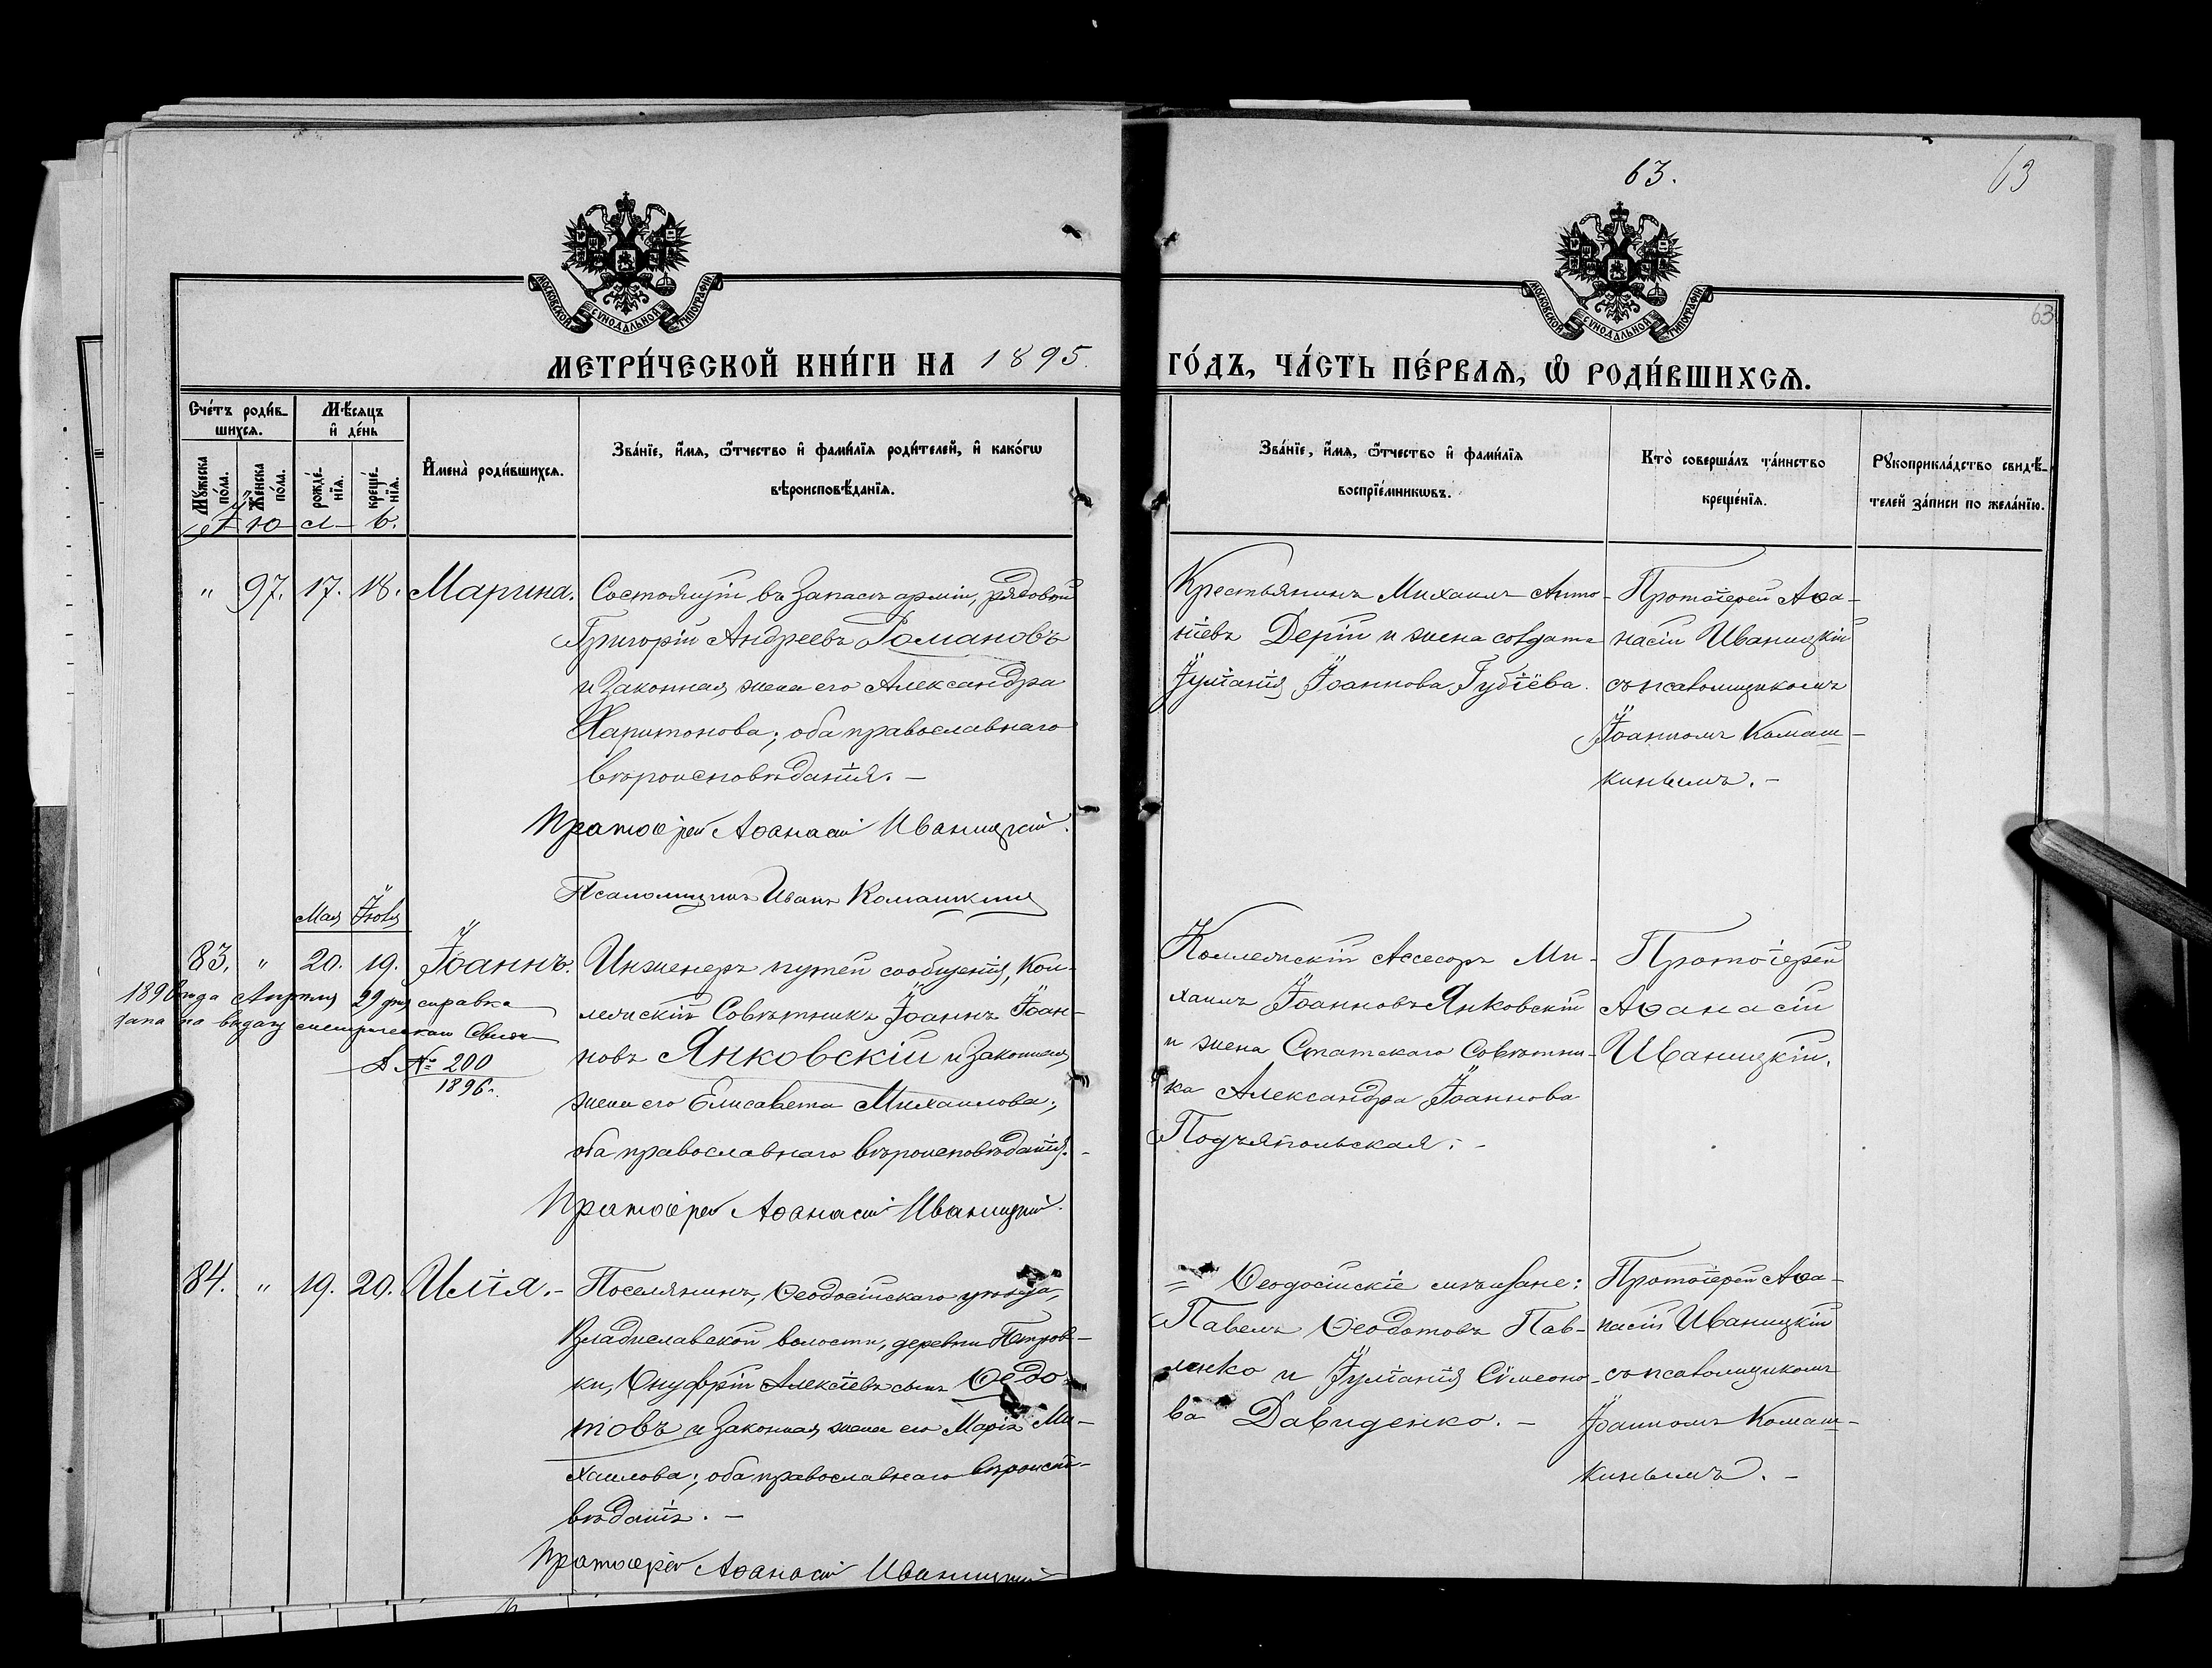 63.
63
63
МОСКОВСКОЙ СѴНОДАЛЬНОЙ ТИПОГРАФІИ
МОСКОВСКОЙ СѴНОДАЛЬНОЙ ТИПОГРАФІИ
МЕТРИ́ЧЕСКОЙ КНИ́ГИ НА 1895.
ГО́ДЪ, ЧА́СТЬ ПЕ́РВАѦ, Ѽ РОДИ́ВШИХСѦ.
Сче́тъ роди́в-
шихсѧ.
Мꙋ́жеска
по́ла.
Же́нска
по́ла.
Мѣ́сѧцъ
и҆ де́нь
рожде́-
нїѧ.
креще́-
нїѧ.
И҆мена̀ роди́вшихсѧ.
Зва́нїе, и҆́мѧ, ѻ҆́тчество и҆ фами́лїѧ роди́телей, и҆ како́гѡ
вѣроисповѣ́данїѧ.
Зва́нїе, и҆́мѧ, ѻ҆́тчество и҆ фами́лїѧ
воспрїе́мникѡвъ.
Кто̀ соверша́лъ та́инство
креще́нїѧ.
Рꙋкоприкла́дство свидѣ́-
телей за́писи по жела́нїю.
І ю л ь.
„ 97. 17. 18. Марина.
Состоящій въ запасѣ арміи, рядовой
Григорій Андреевъ Романовъ
и законная жена его Александра
Харитонова; оба православнаго
вѣроисповѣданія. –
Протоіерей Аѳанасій Иваницкій.
Псаломщикъ Иванъ Комашкинъ
Крестьянинъ Михаилъ Анто-
ніевъ Дерій и жена солдата
Іуліанія Іоаннова Губіёва.
Протоіерей Аѳа-
насій Иваницкій
съ псаломщикомъ
Іоанномъ Комаш-
кинымъ. –
Мая Іюля
83. „ 20. 19. Іоаннъ.
1896 года Апрѣля 29 дня справка
дана на выдачу метрическаго Свидѣт
№ 200
1896.
Инженеръ путей сообщенія, Кол-
лежскій Совѣтникъ Іоаннъ Іоан-
новъ Янковскій и законная
жена его Елисавета Михаилова;
оба православнаго вѣроисповѣданія. -
Протоіерей Аѳанасій Иваницкій.
Коллежскій Ассесоръ Ми-
хаилъ Іоанновъ Янковскій
и жена Статскаго Совѣтни-
ка Александра Іоаннова
Подъяпольская. -
Протоіерей
Аѳанасій
Иваницкій.
84. „ 19. 20. Илія. -
Поселянинъ, Ѳеодосійскаго уѣзда,
Владиславской волости, деревни Петров-
ки, Онуфрій Алексіевъ сынъ Ѳедо-
товъ и законная жена его Марія Ми-
хаилова; оба православнаго вѣроиспо-
вѣданія. –
Протоіерей Аѳанасій Иваницкій
= Ѳеодосійскіе мѣщане:
Павелъ Ѳеодотовъ Пав-
ленко и Іуліанія Сѵмеоно-
ва Давиденко. –
Протоіерей Аѳа-
насій Иваницкій
съ псаломщикомъ
Іоанномъ Комаш-
кинымъ. –